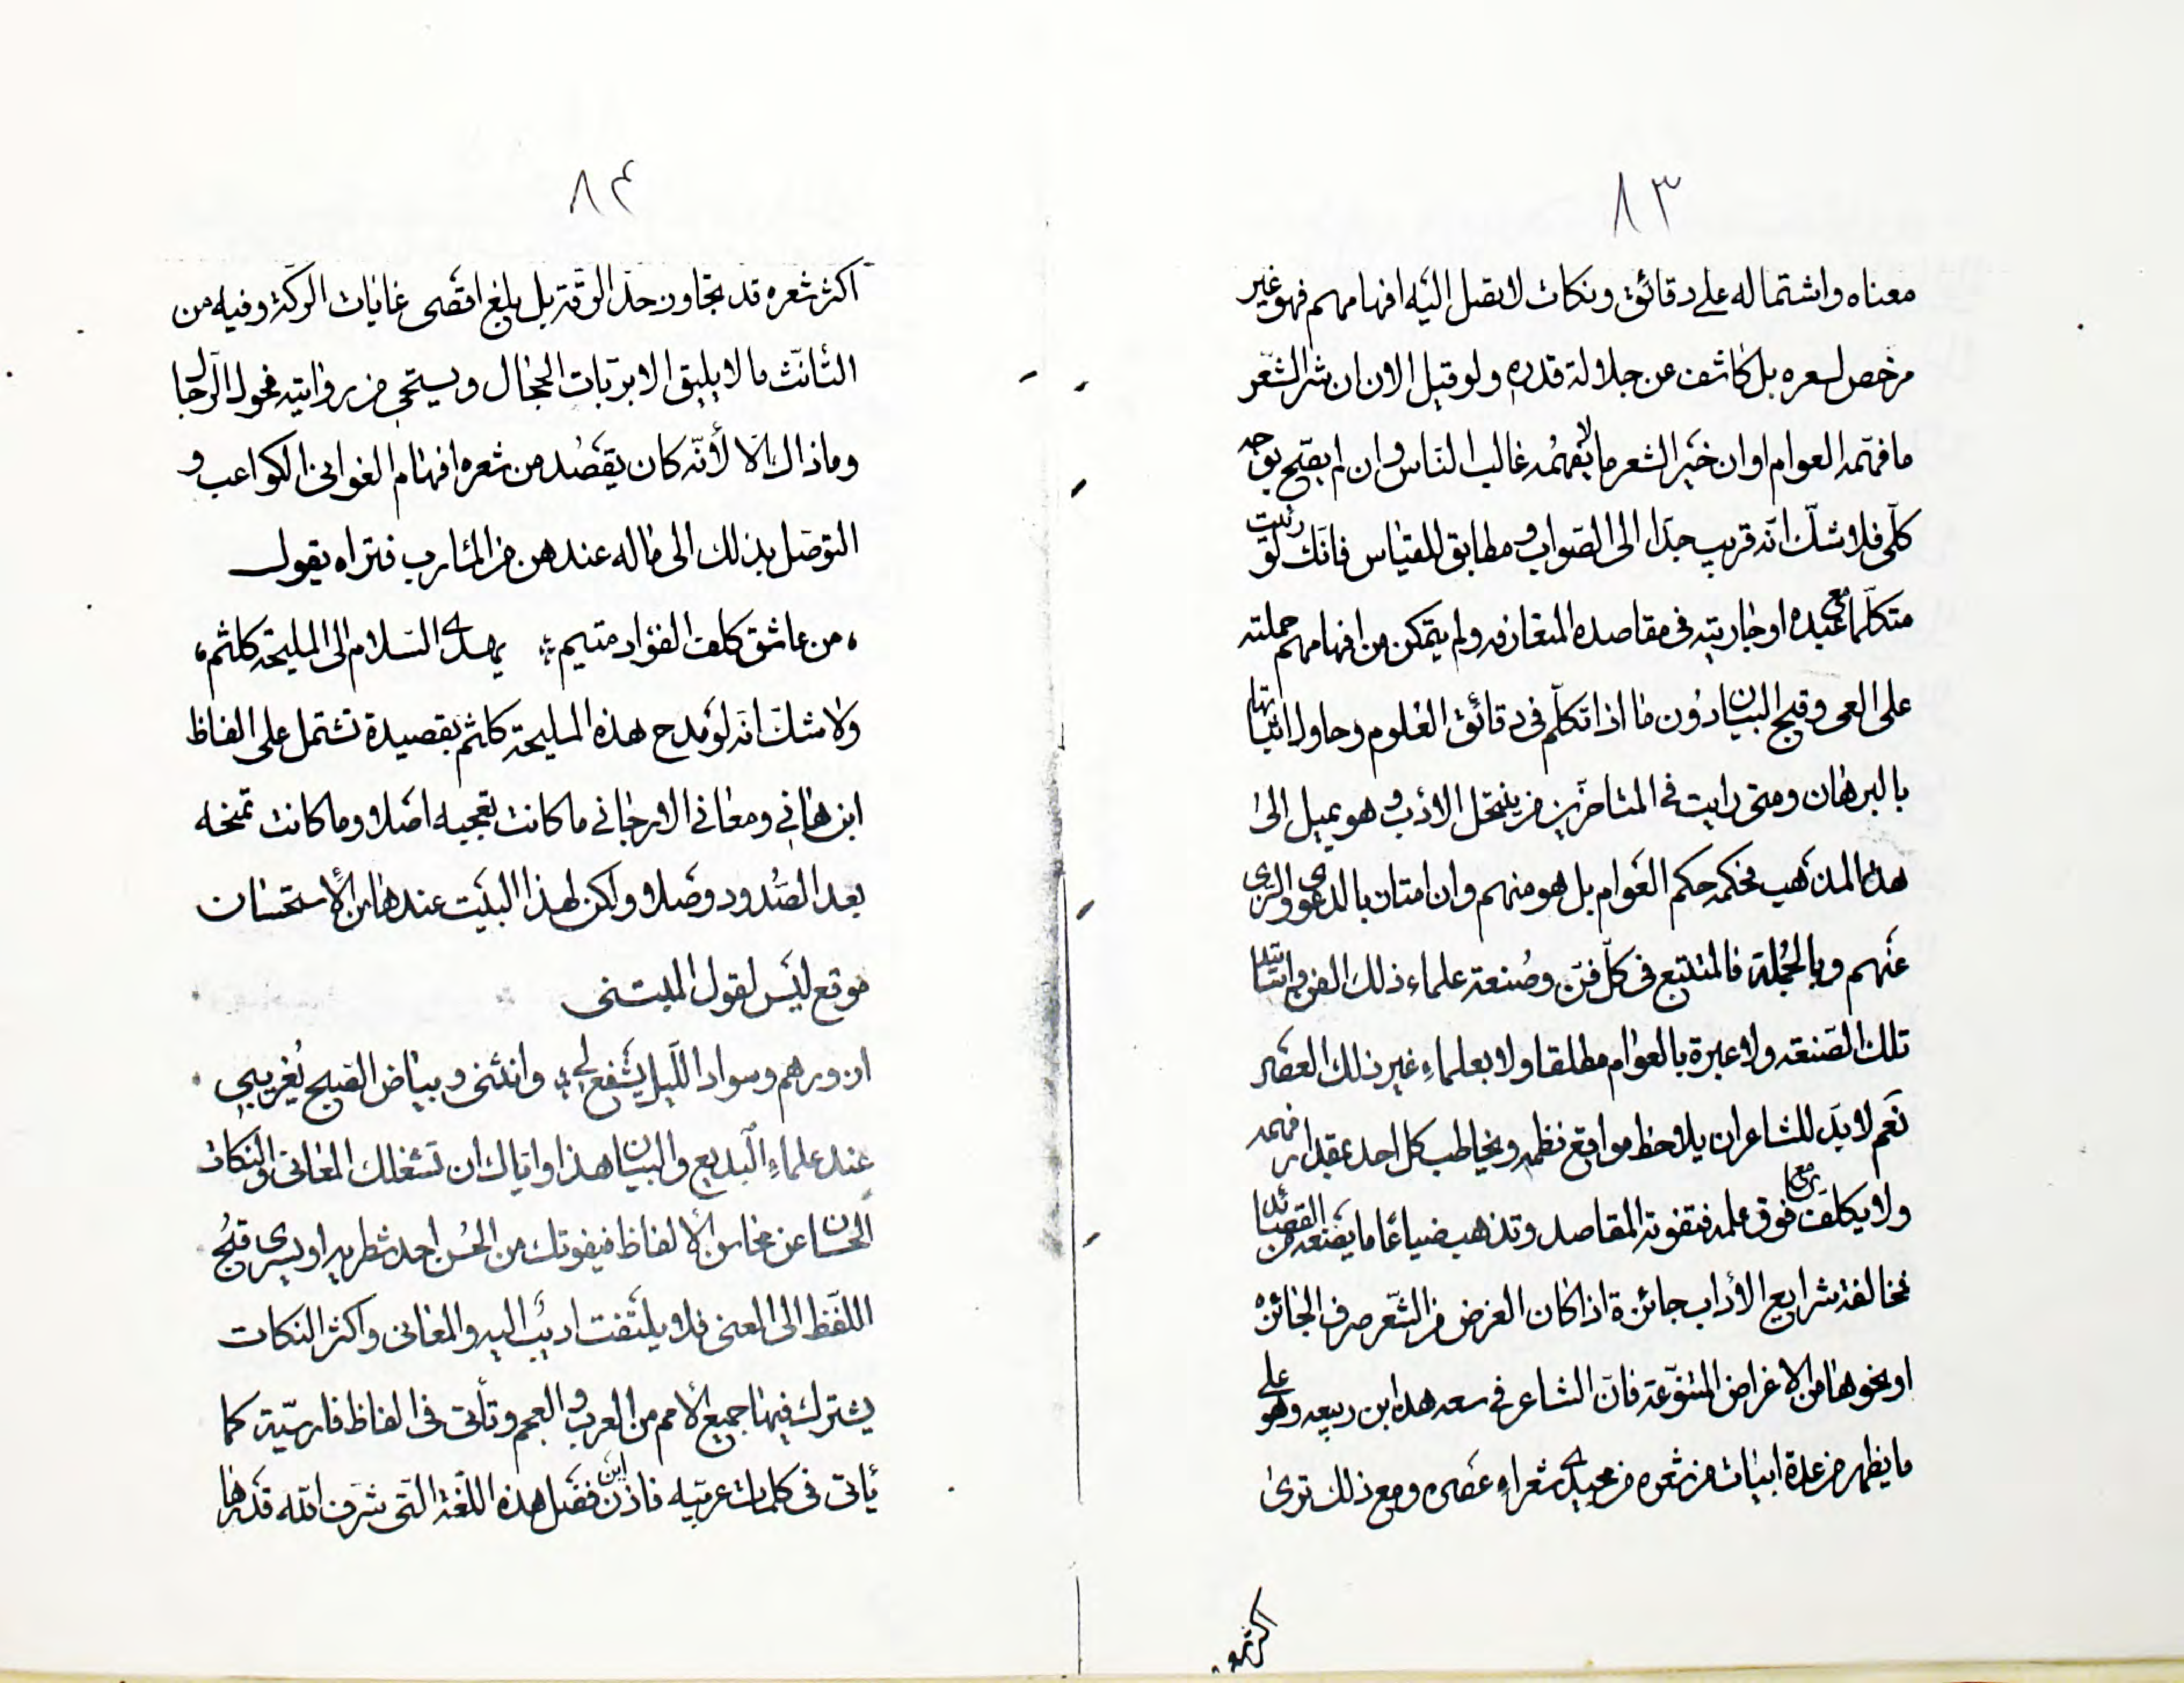 ٨٣
معناه واشتماله على دقائق ونكات لا تصل اليه افهامهم فهو غير
مرخص لسعره بل كاشف عن جلالة قدره ولو قيل الان ان شر الشعر
ما فهمه العوام او ان خير الشعر ما لا يفهمه غالب الناس وان لم يصح بوجه
كلّى فلا شك انّه قريب جدّا الى الصواب ومطابق للقياس فانّك لو رايت
متكلّما مع عبده او جاريته فى مقاصده المتعارفه ولم يتمكن من افهامهم حملته
على العى وقبح البيان دون ما اذا تكلّم فى دقائق العلوم وحاول اثباتها
بالبرهان ومتى رايت فى المتاخرين من ينتحل الادب وهو يميل الى
هذا المذهب فحكمه حكم العوام بل هو منهم وان امتاز بالدعوى والزى
عنهم وبالجملة فالمتبع فى كلّ فنّ وصنعة علماء ذلك الفن واساتيد
تلك الصّنعه ولا عبرة بالعوام مطلقا ولا بعلماء غير ذلك العصر
نعم لا بدّ للشاعر ان يلاحظ مواقع نظمه ويخاطب كل احد بمقدار فهمه
ولا يكلف فوق علمه فتفوته المقاصد وتذهب ضياعا ما يصنعه من القصائد
مخالفة شرايع الأداب جائزة اذا كان الغرض من الشّعر صرف الجائزه
او نحوها من الاغراض المتنوّعة فانّ الشاعر فى سعه هذا ابن ربيعه وهو على
ما يظهر من عدة ابيات من شعره من مجيدى شعراء عصره ومع ذلك ترى
اكثر شعره
٨٤
اكثر شعره قد تجاوز حدّ الرقّة بل بلغ اقصى غايات الركّة وفيه من
التأنّث ما لا يليق الا بربّات الحجال ويستحى من روايته فحول الرّجال
وما ذاك الّا لأنّه كان يقصد من شعره افهام الغوانى الكواعب و
التوصّل بذلك الى ما له عندهن من المئارب فتراه يقول
من عاشق كلف الفؤاد متيم يهدى السّلام الى المليحة كلثم
ولا شك انّه لو مدح هذه المليحة كلثم بقصيدة تشتمل على الفاظ
ابن هانى ومعانى الارجانى ما كانت تعجبه اصلا وما كانت تمنحه
بعد الصّدود وصلا ولكن لهذا البيت عندها من الأستحسان
موقع ليس لقول المتنبى
ازورهم وسواد اللّيل يشفع لى وانثنى وبياض الصبح يغرى بى
عند علماء البديع والبيان هذا واياك ان تشغلك المعانى والنكات
الحسان عن محاسن الألفاظ فيفوتك من الحسن احد شطريه او يسرى قبح
اللفظ الى المعنى فلا يلتفت اديب اليه والمعانى واكثر النكات
يشترك فيها جميع الأمم من العرب والعجم وتأتى فى الفاظ فارسيّة كما
يأتى فى كلمات عربيّه فاذن اين فضل هذه اللّغة التى شرّف الله قدرها